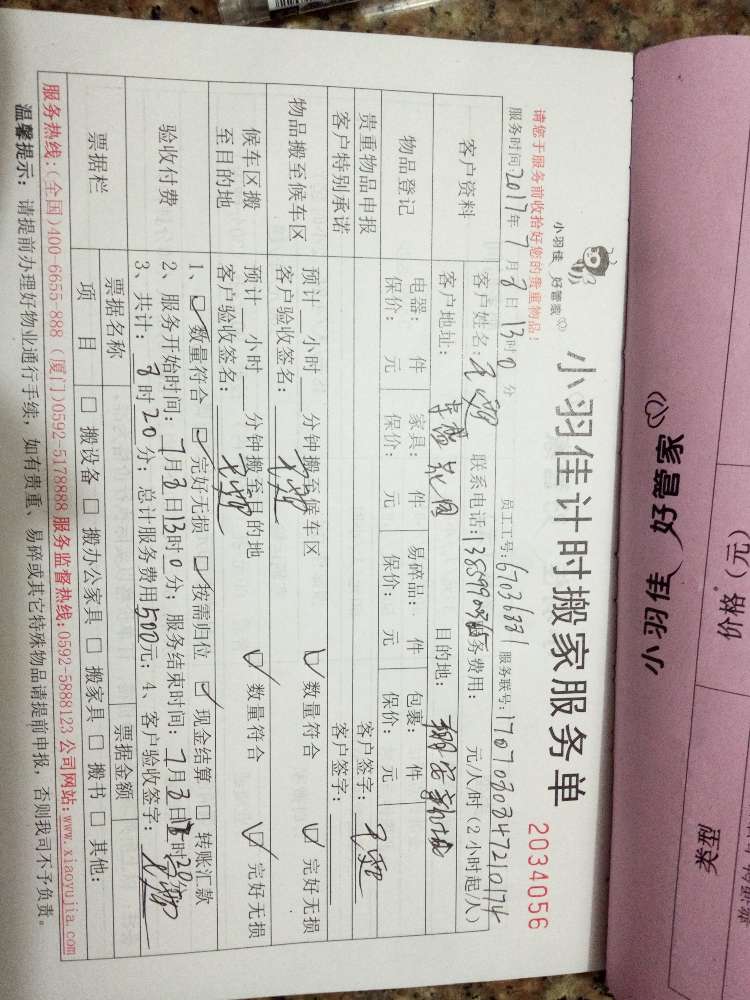 小羽佳 好管家
小羽佳计时搬家服务单
2034056
请您于服务前收拾好您的贵重物品！
服务时间2017年7月8日13时0分 员工工号：67036881 服务联号：
客户资料 客户姓名： 联系电话： 服务费用： 元/人/时（2小时起/人）
客户地址： 目的地：
物品登记 电器： 件 家具： 件 易碎品： 件 包裹： 件
保价： 元 保价： 元 保价： 元 保价： 元
贵重物品申报 客户签字：
客户特别承诺 客户签字：
物品搬至候车区 预计 小时 分钟搬至候车区 ☑ 数量符合 ☑ 完好无损
客户验收签名：
候车区搬至目的地 预计 小时 分钟搬至目的地 ☑ 数量符合 ☑ 完好无损
客户验收签名：
验收付费 1、☑ 数量符合 ☑ 完好无损 ☑ 按需归位 ☑ 现金结算 □ 转账汇款
2、服务开始时间：7月8日13时0分；服务结束时间：7月8日 时20分
3、共计： 时20分；总计服务费用500元；4、客户验收签字：
票据栏 票据名称 票据金额
项 目 □ 搬设备 □ 搬办公家具 □ 搬家具 □ 搬书 □ 其他：
服务热线：(全国)400-6655-888 (厦门)0592-5178888 服务监督热线：0592-5888123 公司网站：www.xiaoyujia.com
温馨提示：请提前办理好物业通行手续，如有贵重、易碎或其它特殊物品请提前申报，否则我司不予负责。
小羽佳 好管家
类型
价格（元）